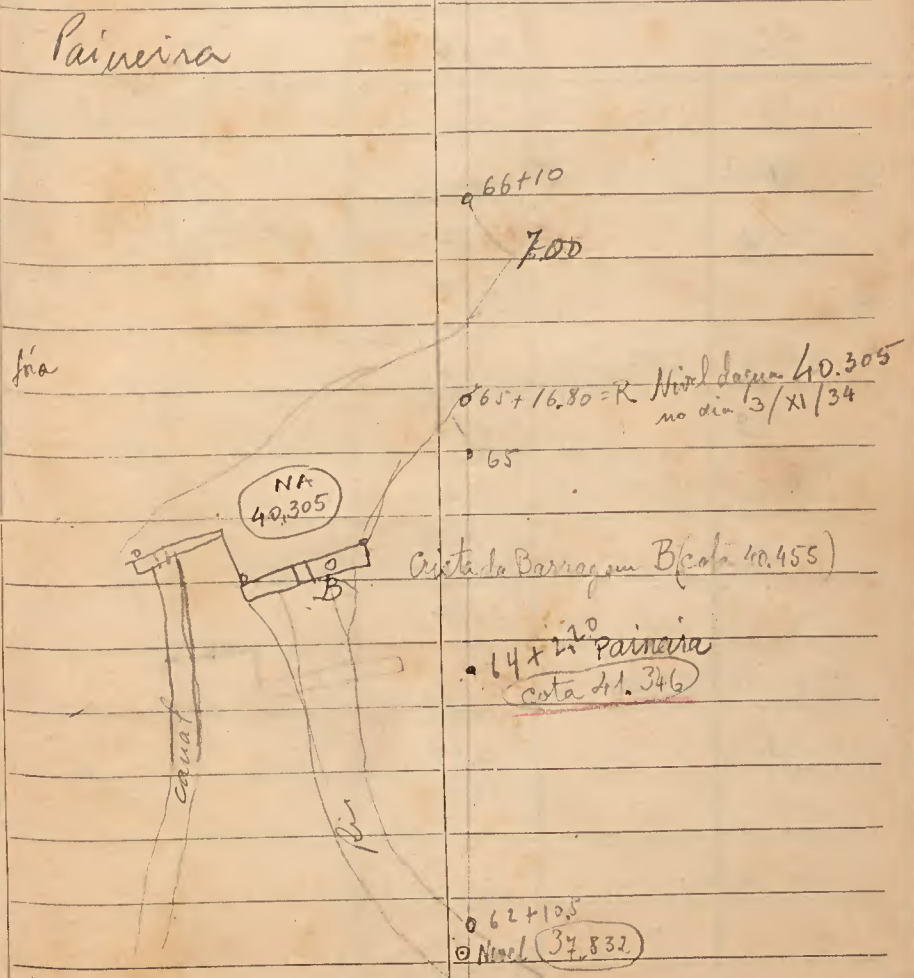 Paineira
66+10
7.00
65+16.80=R Nivel dagua 40.305
no dia 3/XI/34
65
NA
40,305
B
Crista da Barragem B (cota 40.455)
64+2.20 Paineira
cota 41.346
canal
Rio
62+10,5
Nivel 37.832